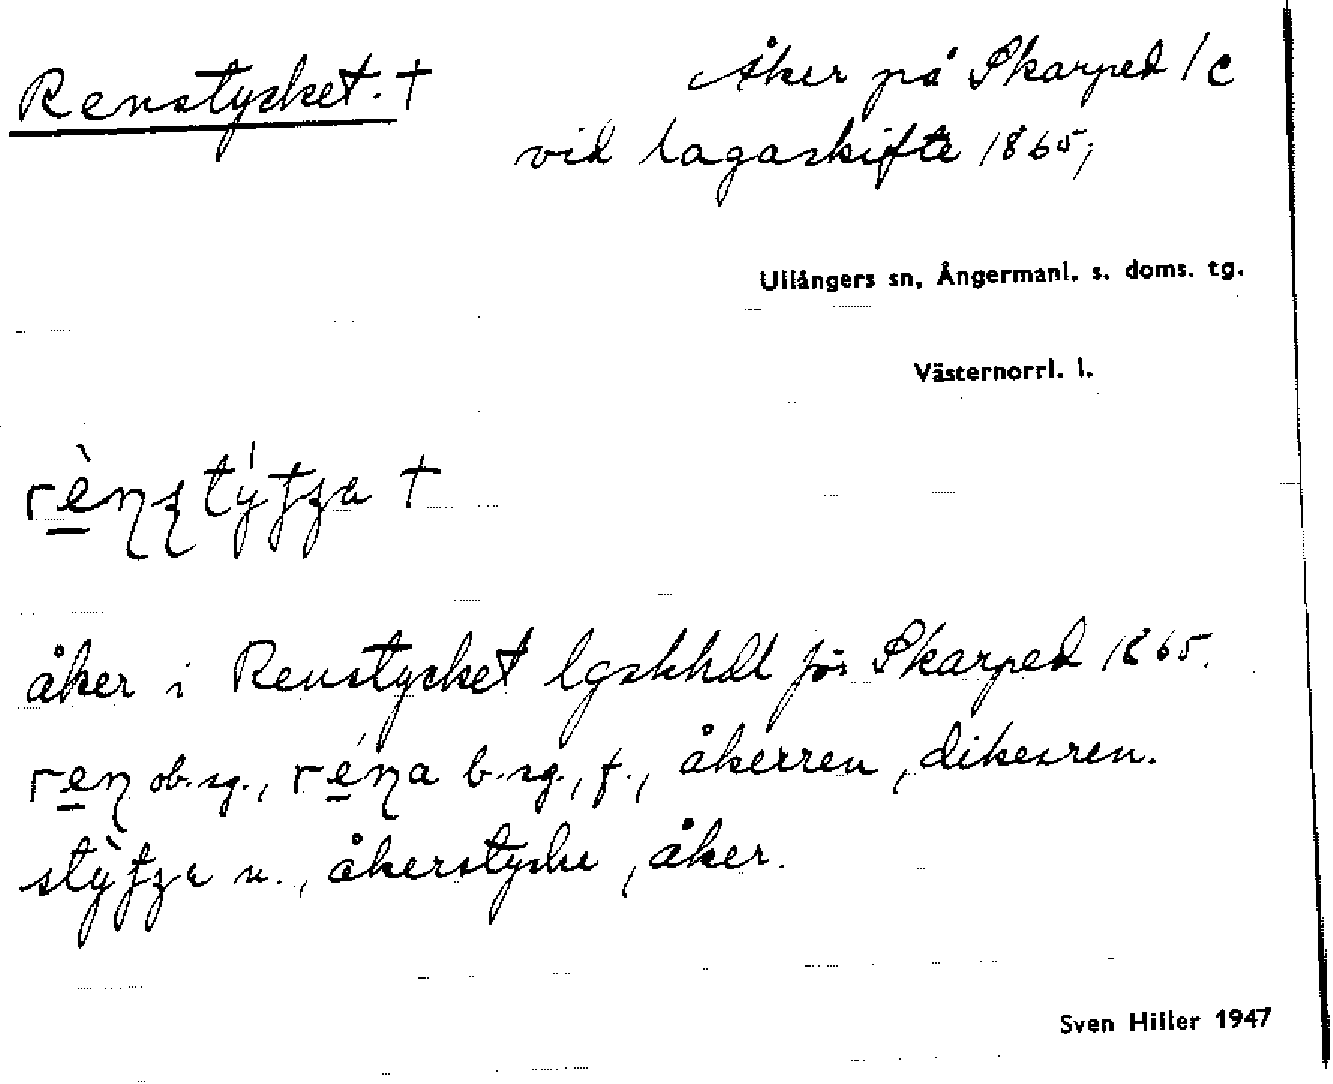 Renstycket. † Åker på Skarped 1/c
vid lagaskifte 1865;
Ullångers sn, Ångermanl. s. doms. tg.
Västernorrl. l.
åker i Renstycket lgskhdl för Skarped 1865.
ob. sg., b. sg., f., åkerren, dikesren.
n., åkerstycke, åker.
Sven Hiller 1947